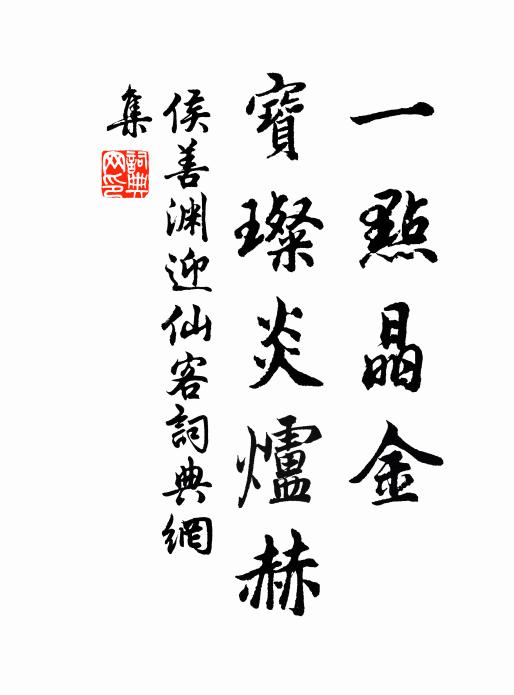 一點晶金
寶璨炎爐赫
侯善渊迎仙客詞典網
集
詞典
网印